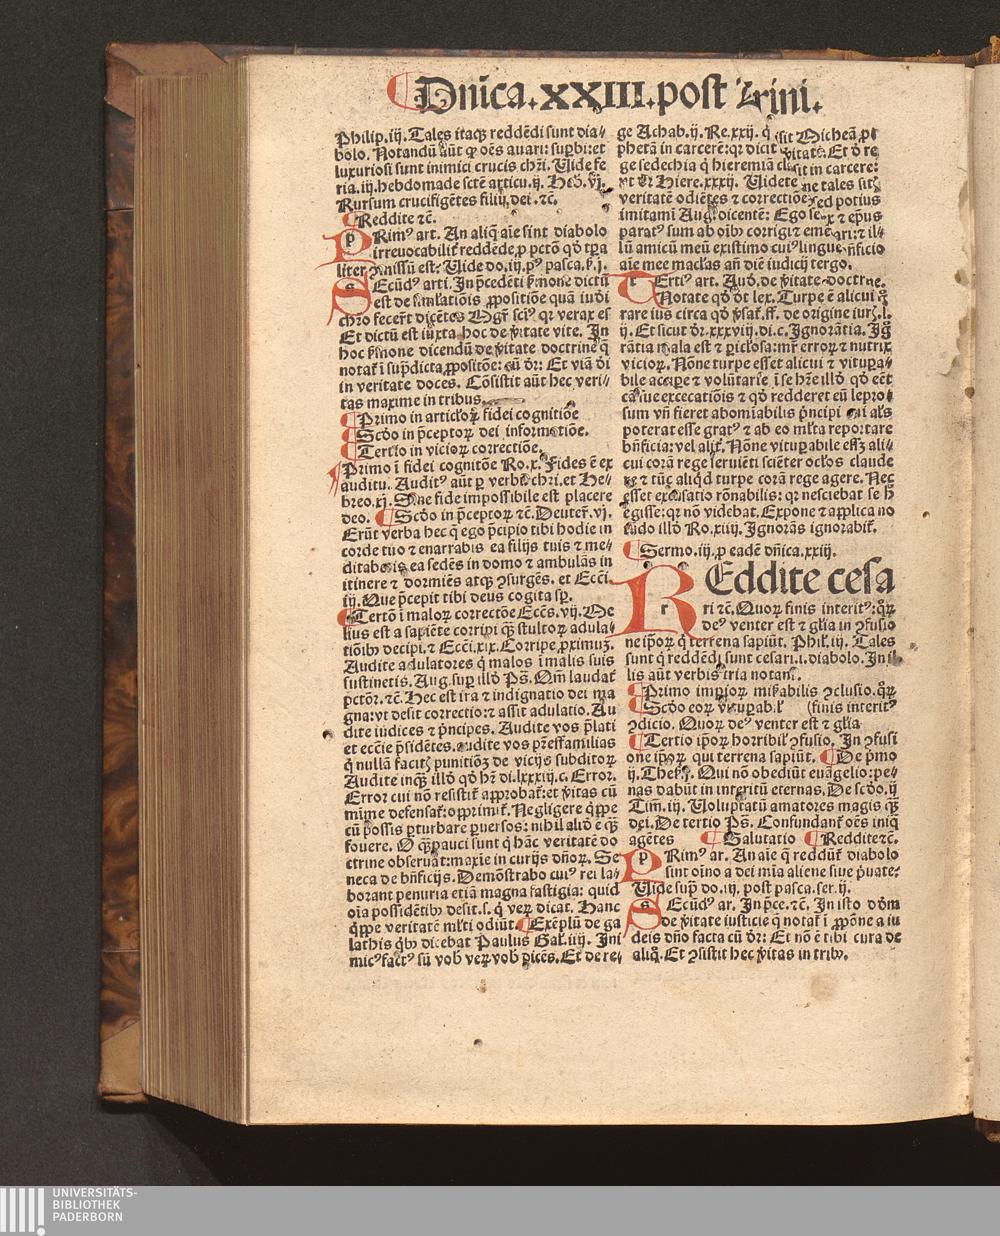 Dnica.XXIII.post Trini.
Philip.iij. Tales itaqꝫ reddēdi sunt dia-
bolo. Notandū aūt ꝙ oēs auari: supbi: et
luxuriosi sunt inimici crucis chri. Uide fe
ria.iij.hebdomade scte articu.ij. Heb.vj.
Rursum crucifigētes filiū dei.⁊c.
Reddite ⁊c.
PRimꝰ art. An aliq̄ aīe sint diabolo
irreuocabilit̄ reddēde, ꝓ pctō qd̓ tꝑa
liter ꝯmissū est. Uide do.iij.pꝰ pasca.f.j.
SEcūdꝰ arti. In p̄cedēti sermone dictū
est de simlatiōis ꝓpositiōe quā iudi
chro fecert̄ dicētes Mgr̄ scimꝰ qꝛ verax es
Et dictū est iuxta hoc de v̄itate vite. In
hoc sermone dicendū de v̄itate doctrine q̄
notat̄ ī sup̄dicta ꝓpositōe: cū dr̄: Et viā dī
in veritate doces. Cōsistit aūt hec veri-
tas maxime in tribus.
Primo in articloꝝ fidei cognitiōe
Scdo in p̄ceptoꝝ dei informatiōe.
Tertio in vicioꝝ correctiōe.
Primo ī fidei cognitōe Ro.x. Fides ē ex
auditu. Auditꝰ aūt ꝑ verbū chri. et He-
breo.xj. Sine fide impossibile est placere
deo. Scdo in p̄ceptoꝝ ⁊c. Deuter̄.vj.
Erūt verba hec q̄ ego p̄cipio tibi hodie in
corde tuo ⁊ enarrabis ea filijs tuis ⁊ me-
ditaberis ea sedēs in domo ⁊ ambulās in
itinere ⁊ dormiēs atqꝫ ꝯsurgēs. et Ecci.
iij. Que p̄cepit tibi deus cogita sp̄.
Tertō ī maloꝝ correctōe Eccs.vij. Me
lius est a sapiēte corripi qꝫ stultoꝝ adula-
tiōibꝰ decipi. ⁊ Ecci.xix. Corripe ꝓximuꝫ.
Audite adulatores q̄ malos ī malis suis
sustinetis. Aug. sup illd̓ Ps. Om̄ laudat̄
pctōr. ⁊c. Hec est ira ⁊ indignatio dei ma
gna: vt desit correctio: ⁊ assit adulatio. Au
dite iudices ⁊ p̄ncipes. Audite vos p̄lati
et eccie p̄sidētes. audite vos pr̄esfamilias
q̄ nullā facitis punitiōꝫ de vicijs subditoꝝ
Audite inqꝫ illd̓ qd̓ hr̄ di.lxxxiij.c. Error.
Error cui nō resistit̄ approbat̄: et v̄itas cū
mīme defensat̄: opprimit̄. Negligere q̄ppe
cū possis ꝑturbare ꝑuersos: nihil aliō ē qꝫ
fouere. O qꝫ pauci sunt q̄ hāc veritatē do
ctrine obseruāt: maxie in curijs dn̄oꝝ. Se
neca de bn̄ficijs. Demōstrabo cuiꝰ rei la-
borant penuria etiā magna fastigia: quid
oīa possidētibꝰ desit. s. q̄ veꝝ dicat. Hanc
q̄ppe veritatē mlti odiūt. Exēplū de ga
lathis qbꝰ dicebat Paulus Gal.iiij. Ini
micꝰ factꝰ sū vob veꝝ vob dicēs. Et de re-
ge Achab.ij. Re.xxij. q̄ misit Micheā ꝓ
phetā in carcerē: qꝛ dicit v̄itatē. Et d̓ re
ge sedechia q̄ hieremiā clusit in carcere:
vt dr̄ Hiere.xxxij. Uidete ne tales sitis
veritatē odiētes ⁊ correctiōē sed potius
imitamī Aug. dicentē: Ego senex ⁊ ep̄us
paratꝰ sum ab oībꝰ corrigi ⁊ emēdari: ⁊ il-
lū amicū meū existimo cuiꝰ lingue bn̄ficio
aīe mee maclas an̄ diē iudicij tergo.
TErtiꝰ art. Aud̓. de v̄itate doctrne.
Notate qd̓ dt̄ lex. Turpe ē alicui q̄
rare ius circa qd̓ vsat̄. ff. de origine iurꝭ.l.
ij. Et sicut dr̄.xxxviij.di.c. Ignorātia. Iḡ
rātia mala est ⁊ piclosa: mr̄ erroꝝ ⁊ nutrix
vicioꝝ. Nōne turpe esset alicui ⁊ vitupa-
bile accipe ⁊ volūtarie ī se hr̄e illd̓ qd̓ eēt
causue excecatiōis ⁊ qd̓ redderet eū lepro-
sum vn̄ fieret abomīabilis p̄ncipi cui als
poterat esse gratꝰ ⁊ ab eo mlta reportare
bn̄ficia: vel alit̄. Nōne vitupabile essꝫ ali-
cui corā rege seruiēti sciēter oclos claude
re ⁊ tūc aliqd̓ turpe corā rege agere. Nec
esset excusatio rōnabilis: qꝛ nesciebat se h̄
egisse: qꝛ nō videbat. Expone ⁊ applica no
tādo illd̓ Ro.xiiij. Ignorās ignorabit̄.
Sermo.iij.ꝓ eadē dn̄ica.xxiij.
REddite cesa
ri ⁊c. Quoꝝ finis interitꝰ: qr̄ꝝ
deꝰ venter est ⁊ glia in ꝯfusio
ne ip̄oꝝ q̄ terrena sapiūt. Phil.iij. Tales
sunt q̄ reddēdi sunt cesari.i.diabolo. In il
lis aūt verbis tria notant̄.
Primo impioꝝ mirabilis ꝯclusio. qr̄ꝝ
Scdo eoꝝ vitupabil̓ (finis interitꝰ
ꝯdicio. Quoꝝ deꝰ venter est ⁊ glia
Tertio ip̄oꝝ horribil̓ ꝯfusio. In ꝯfusi
one ip̄oꝝ qui terrena sapiūt. De p̄mo
ij. Thes.j. Qui nō obediūt euāgelio: pe-
nas dabūt in interitū eternas. De scdo.ij
Tim.iij. Uoluptatū amatores magis qꝫ
dei. De tertio Ps. Confundant̄ oēs iniq̄
agētes Salutatio Reddite ⁊c.
PRimꝰ ar. An aīe q̄ reddūt̄ diabolo
sint oīno a dei mīa aliene siue p̄uate.
Uide sup̄ do.iij. post pasca.fer.ij.
SEcūdꝰ ar. In p̄ce.⁊c. In isto d̓om
de v̄itate iusticie q̄ notat̄ ī ꝓpōne a iu
deis dn̄o facta cū dr̄: Et nō ē tibi cura de
aliq̄. Et ꝯsistit hec v̄itas in tribꝰ.
UNIVERSITÄTS-
BIBLIOTHEK
PADERBORN